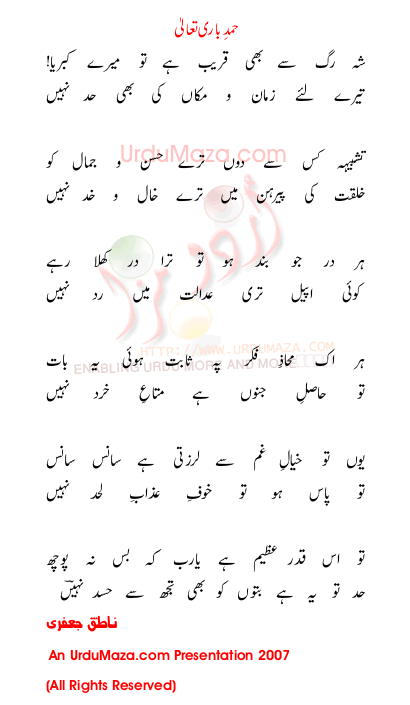 حمدِ باری تعالیٰ
شہ رگ سے بھی قریب ہے تو میرے کبریا!
تیرے لئے زمان و مکاں کی بھی حد نہیں
UrduMaza.com
تشبیہہ کس سے دوں ترے حسن و جمال کو
خلقت کی پیرہن میں ترے خال و خد نہیں
اُردو مزا
ہر در جو بند ہو تو ترا در کھلا رہے
کوئی اپیل تری عدالت میں رد نہیں
HTTP://WWW.URDUMAZA.COM
ہر اک محاذِ فکر پہ ثابت ہوئی یہ بات
ENABLING URDU MORE AND MORE
تو حاصلِ جنوں ہے متاعِ خرد نہیں
یوں تو خیالِ غم سے لرزتی ہے سانس سانس
تو پاس ہو تو خوفِ عذابِ لحد نہیں
تو اس قدر عظیم ہے یارب کہ بس نہ پوچھ
حد تو یہ ہے بتوں کو بھی تجھ سے حسد نہیں
ناطق جعفری
An UrduMaza.com Presentation 2007
(All Rights Reserved)